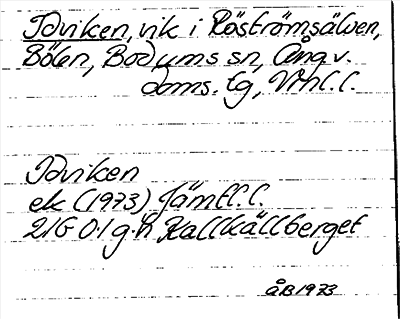 Idviken, vik i Röströmsälven,
Bölen, Bodums sn, Ång v.
doms. tg, Vrnl. l.
Idviken
ek (1973) Jämtl. l.
21G 0 1 g.h Kallkällberget
ÅB 1973